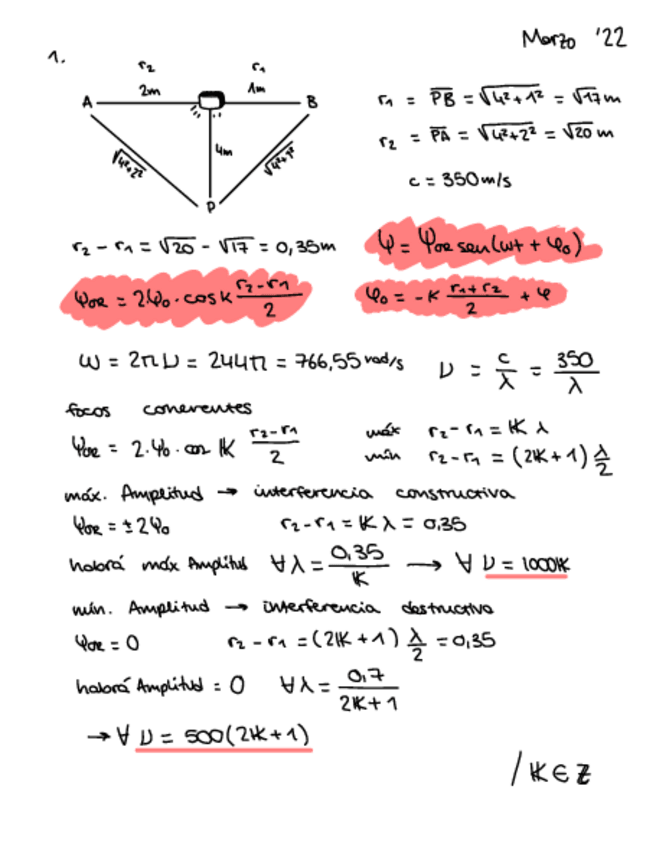 Marzo '22
1.
r₂ r₁
2m 1m
A B
4m
√4²+2² √4²+1²
P
r₁ = PB = √4²+1² = √17 m
r₂ = PA = √4²+2² = √20 m
c = 350 m/s
r₂ - r₁ = √20 - √17 = 0,35m
Ψ = Ψ₀R sen(ωt + φ₀)
Ψ₀R = 2Ψ₀ · cos k (r₂-r₁)/2
φ₀ = -k (r₁+r₂)/2 + φ
ω = 2πν = 244π = 766,55 rad/s
ν = c/λ = 350/λ
focos coherentes
Ψ₀R = 2·Ψ₀· cos K (r₂-r₁)/2
máx r₂-r₁ = K λ
mín r₂-r₁ = (2K+1) λ/2
máx. Amplitud → interferencia constructiva
Ψ₀R = ±2Ψ₀ r₂-r₁ = K λ = 0,35
habrá máx Amplitud ∀ λ = 0,35/K → ∀ ν = 1000K
mín. Amplitud → interferencia destructiva
Ψ₀R = 0 r₂-r₁ = (2K+1) λ/2 = 0,35
habrá Amplitud = 0 ∀ λ = 0,7/2K+1
→ ∀ ν = 500(2K+1)
/ K ∈ ℤ